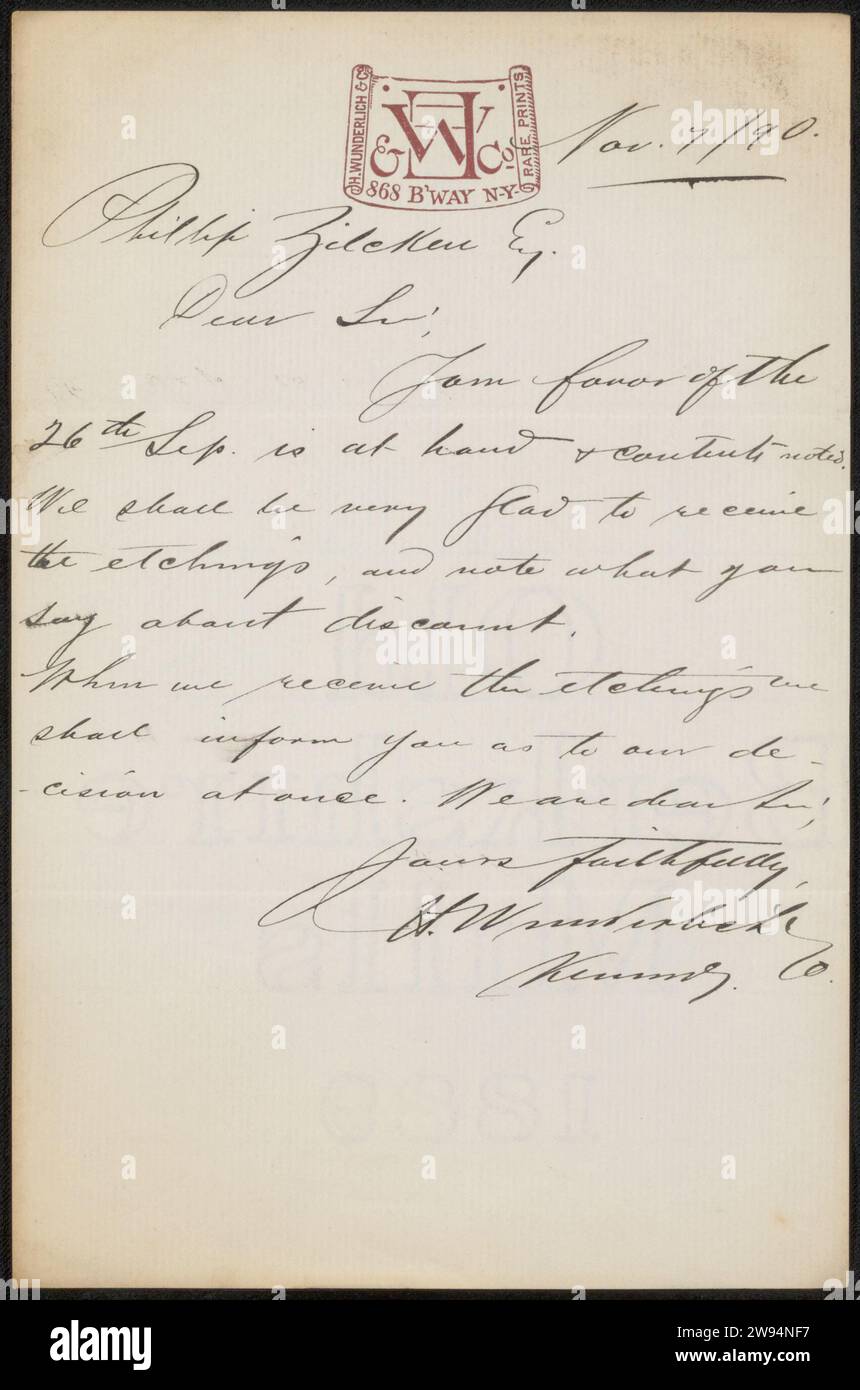 H. WUNDERLICH & Co.
HW & Co.
RARE PRINTS
868 B'WAY N-Y-
Nov. 7/90.
Phillip Zilcken Esq.
Dear Sir;
Your favor of the
26th Sep. is at hand & contents noted.
We shall be very glad to receive
the etchings, and note what you
say about discount.
When we receive the etchings we
shall inform you as to our de-
-cision at once. We are dear Sir;
Yours faithfully,
H. Wunderlich &
Co.
Kennedy.
1889
alamy
Image ID: 2W94NF7
www.alamy.com